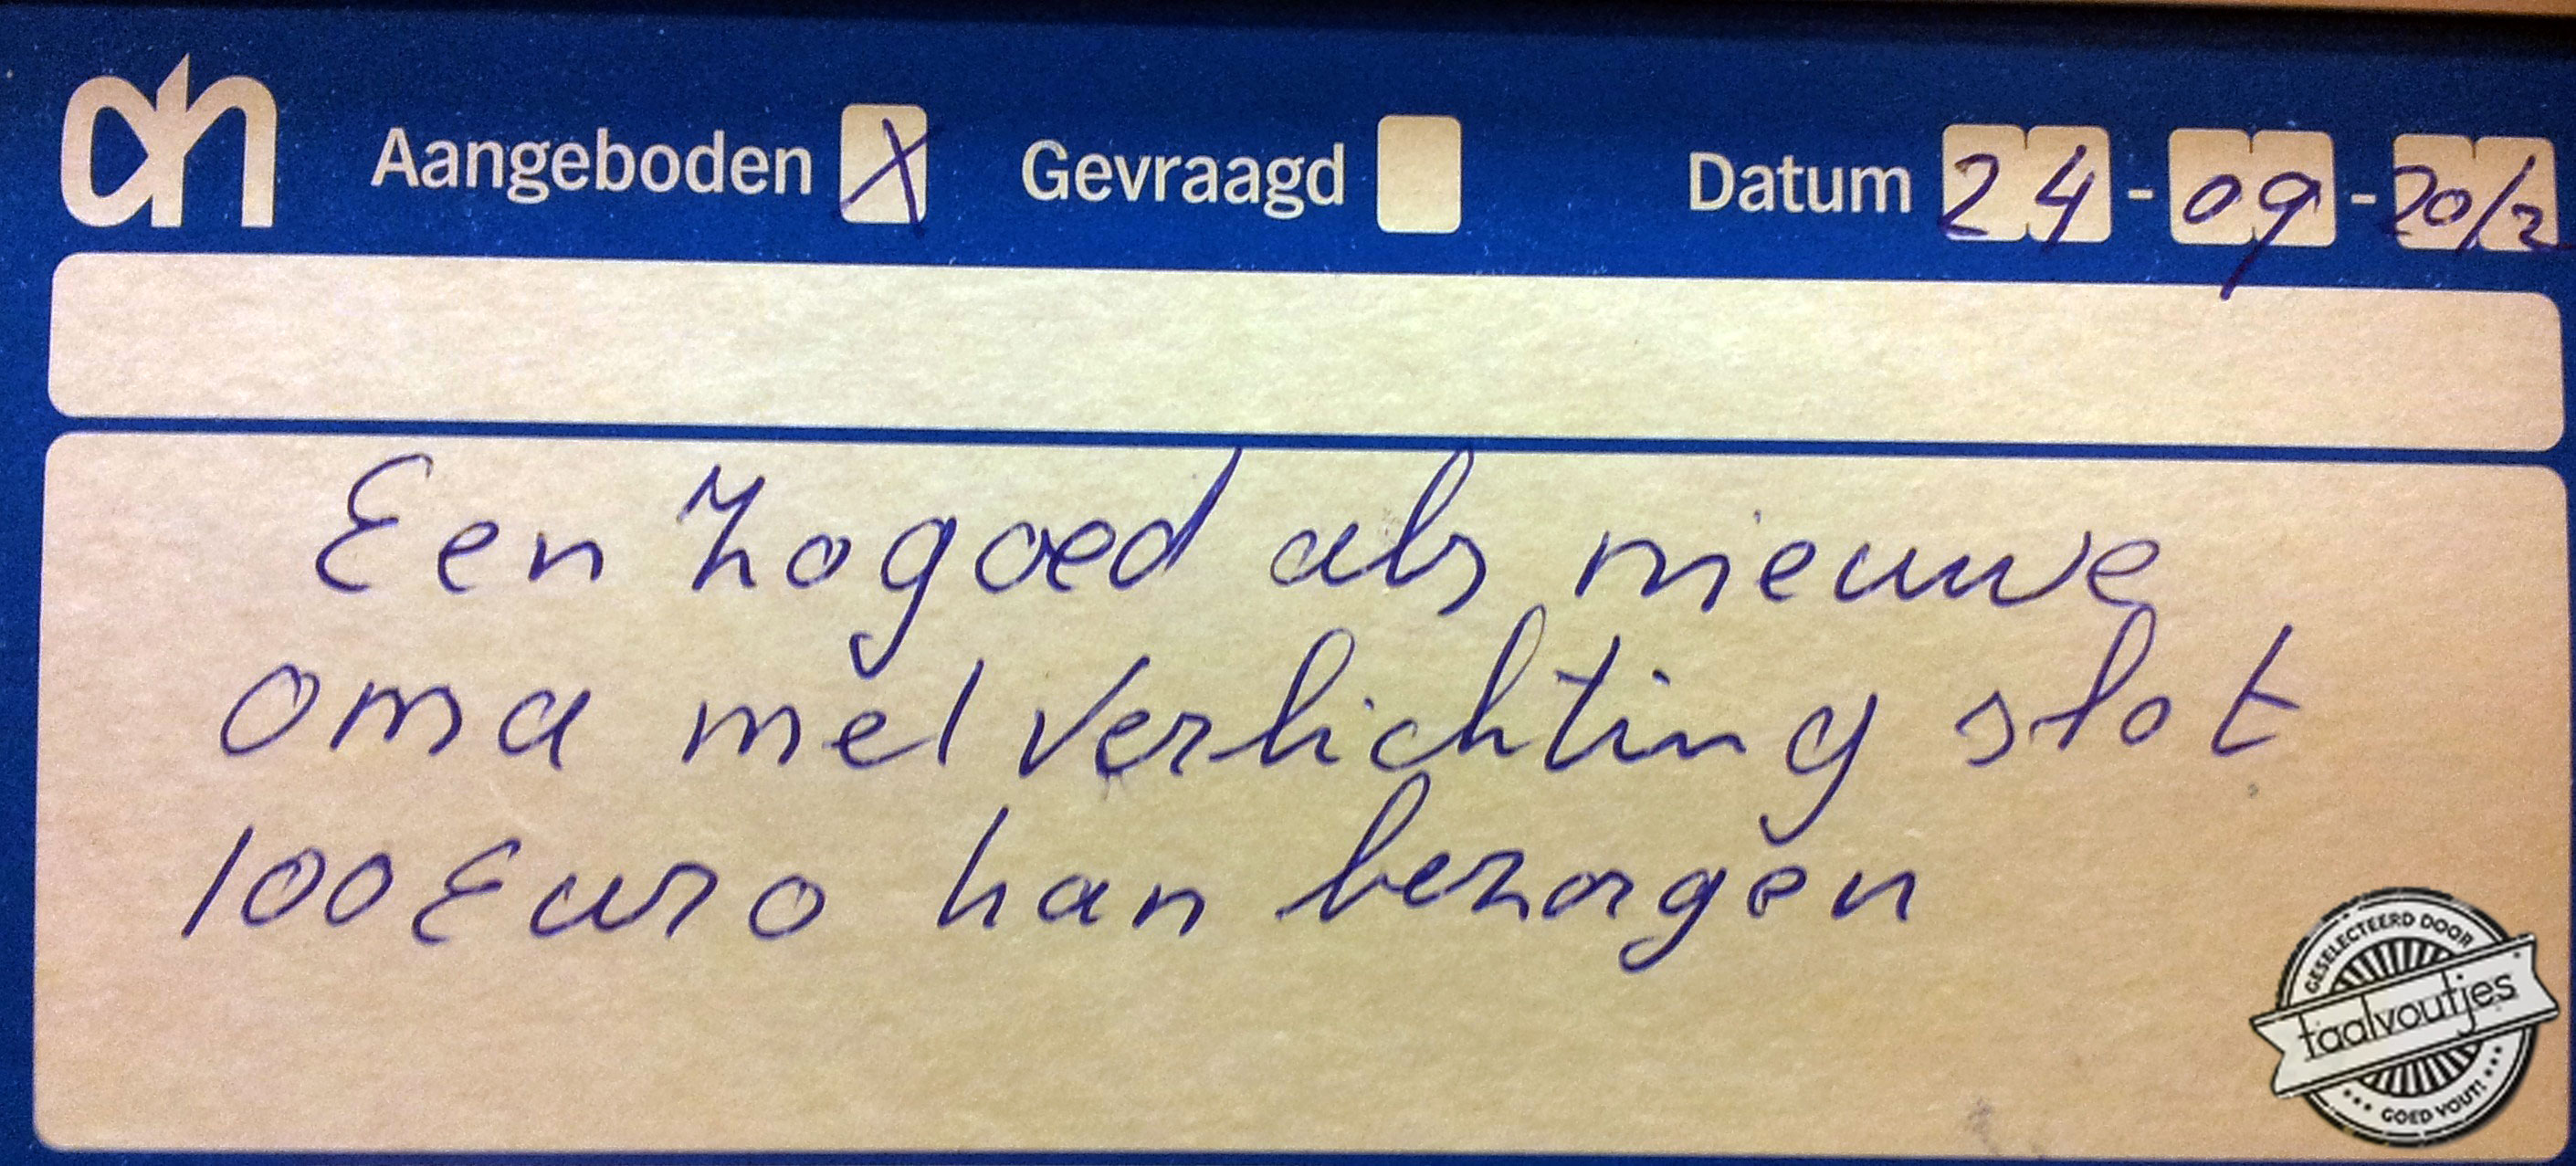 ah Aangeboden X Gevraagd Datum 24-09-2012
Een zo goed als nieuwe
oma met verlichting slot
100 Euro kan bezorgen
GESELECTEERD DOOR
taalvoutjes
GOED VOUT!